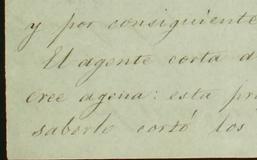 y por consiguiente
El agente corta d
cree agena: esta pr
saberlo cortó los